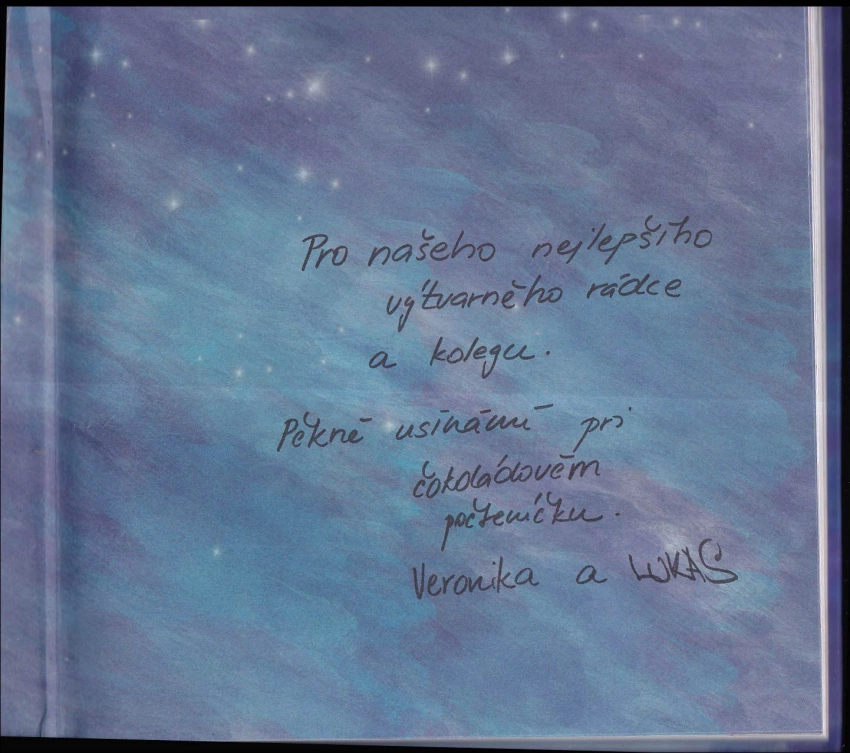 Pro našeho nejlepšího
výtvarného rádce
a kolegu.
Pěkné usínání při
čokoládovém
počteníčku.
Veronika a LUKAS